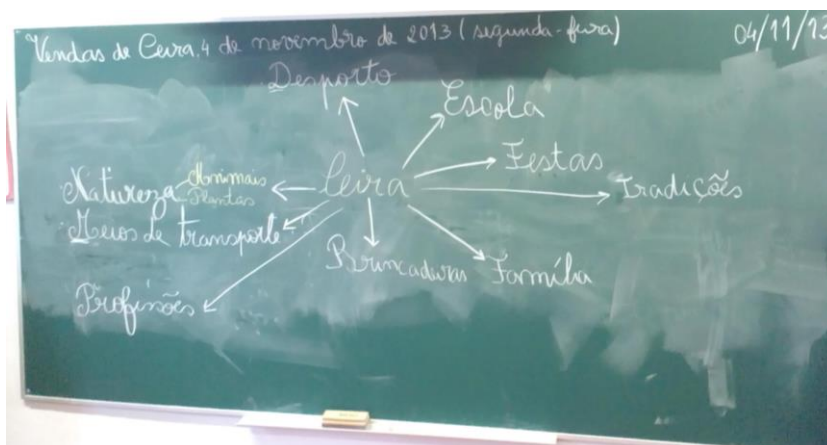 Vendas de Ceira, 4 de novembro de 2013 (segunda-feira)
04/11/13
Desporto
Escola
Festas
Natureza
Animais
Plantas
Ceira
Tradições
Meios de transporte
Brincadeiras
Família
Profissões